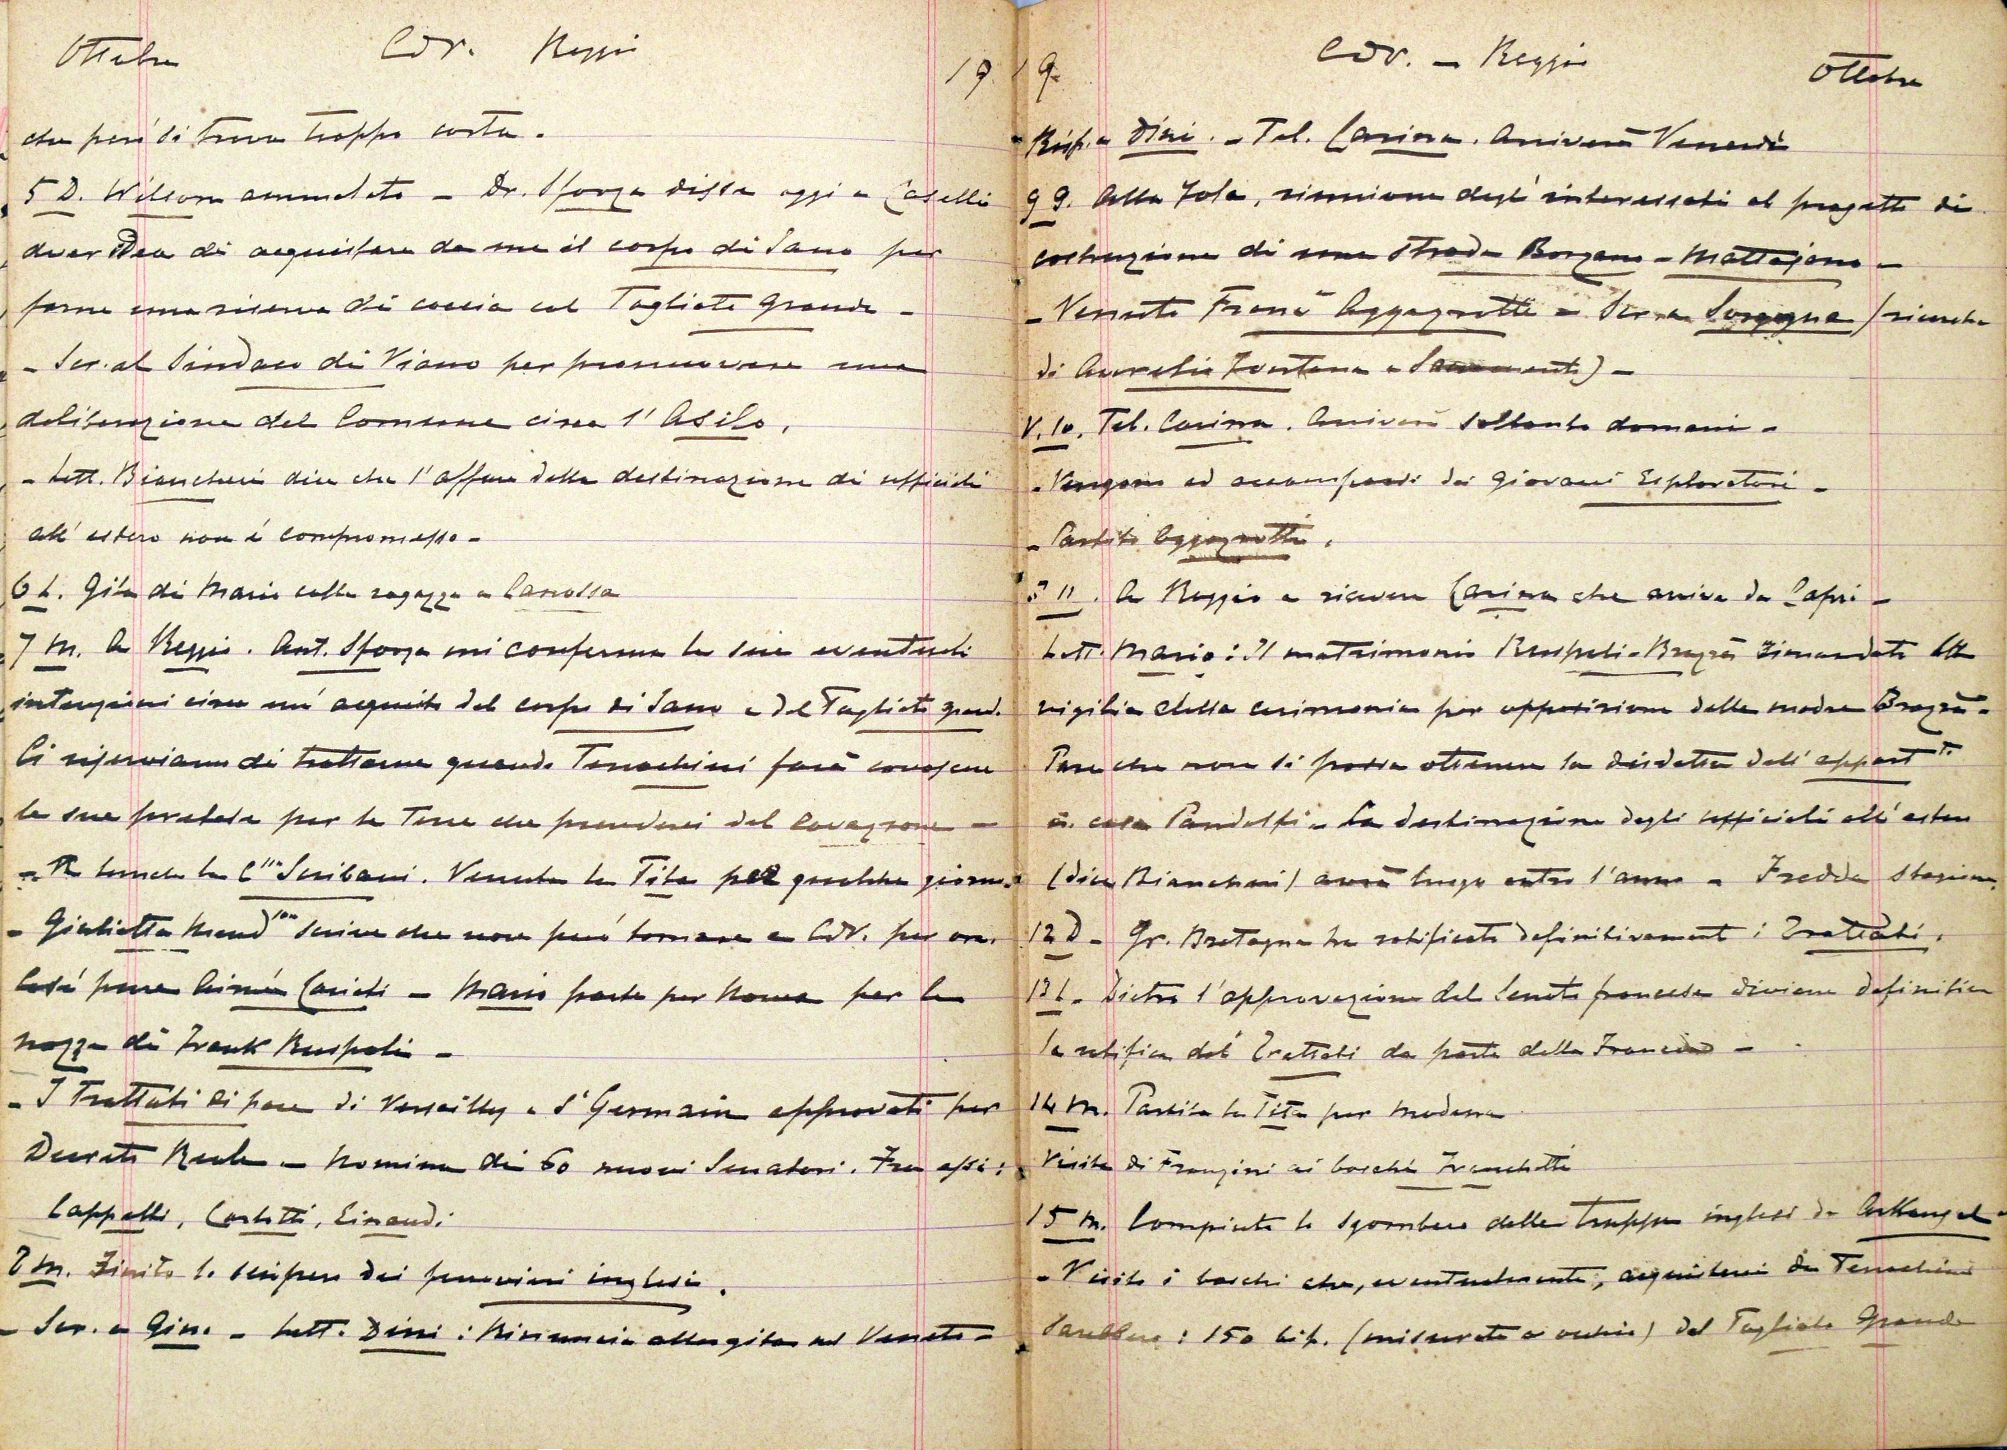 Ottobre CDV. Reggio 19
che però si trova troppo corta.
5 D. Wilson ammalato - Dr. Sforza dissa oggi a Caselli
aver idea di acquistare da me il corpo di Sano per
farne una riserva di caccia col Tagliata grande -
- Scr. al Sindaco di Viano per promuovere una
deliberazione del Comune circa l'Asilo.
- Lett. Biancheri dice che l'affare della destinazione di ufficiali
all'estero non é compromesso -
6 L. Gita di Mario colle ragazze a Canossa
7 M. A Reggio. Ant. Sforza mi conferma le sue eventuali
intenzioni circa un' acquisto del corpo di Sano e del Tagliata grande.
Ci riserviamo di trattarne quando Tenochini farà conoscere
le sue pretese per le Terre che prenderei del Cavazzone -
- la Cssa Scribani. Venuta la Tita per qualche giorno.
- Giulietta scrive che non può tornare a CDV. per ora.
Così pure - Mario parte per Roma per le
nozze di Frank Ruspoli -
- I Trattati di pace di Versailles e St Germain approvati per
Decreto Reale - Nomina di 60 nuovi Senatori. Fra essi:
Cappelli, Einaudi
8 M. Finito lo sciopero dei ferrovieri inglesi.
- Scr. a Gino - Lett. Dini: Rinuncia alla gita nel Veneto -
19 CDV. - Reggio Ottobre
Risp. a Dini. - Tel. Carina. Arriverà Venerdì
9 G. Alla Fola, riunione degli interessati al progetto di
costruzione di una strada Borzano - Mattajano -
- Venuto Franc. Aggazzotti - Scr. a (ricerche
di Aurelio Fontana a Sacramento) -
V. 10. Tel. Carina. Arriverà soltanto domani -
- Vengono ad accamparsi dei Giovani Esploratori -
- Partito Aggazzotti.
S 11. A Reggio a ricevere Carina che arriva da Capri -
Lett. Mario: Il matrimonio Ruspoli - rimandato alla
vigilia della cerimonia per opposizione della madre
Pare che non si possa ottenere la disdetta dell'appartto
a casa Pandolfi - La destinazione degli ufficiali all'estero
(dice Biancheri) avrà luogo entro l'anno - Fredda stagione.
12 D - Gr. Bretagna ha ratificato definitivamente i Trattati.
13 L - Dietro l'approvazione del Senato francese diviene definitiva
la ratifica dei Trattati da parte della Francia -
14 M. Partita la Tita per Modena
Visita di Franzini ai boschi Franchetti
15 M. Compiuto lo sgombero delle truppe inglesi da Arkangel -
- Visito i boschi che, eventualmente, acquisterei da Tenochini
Sarebbero: 150 bif. (misurate a occhio) del Tagliata Grande